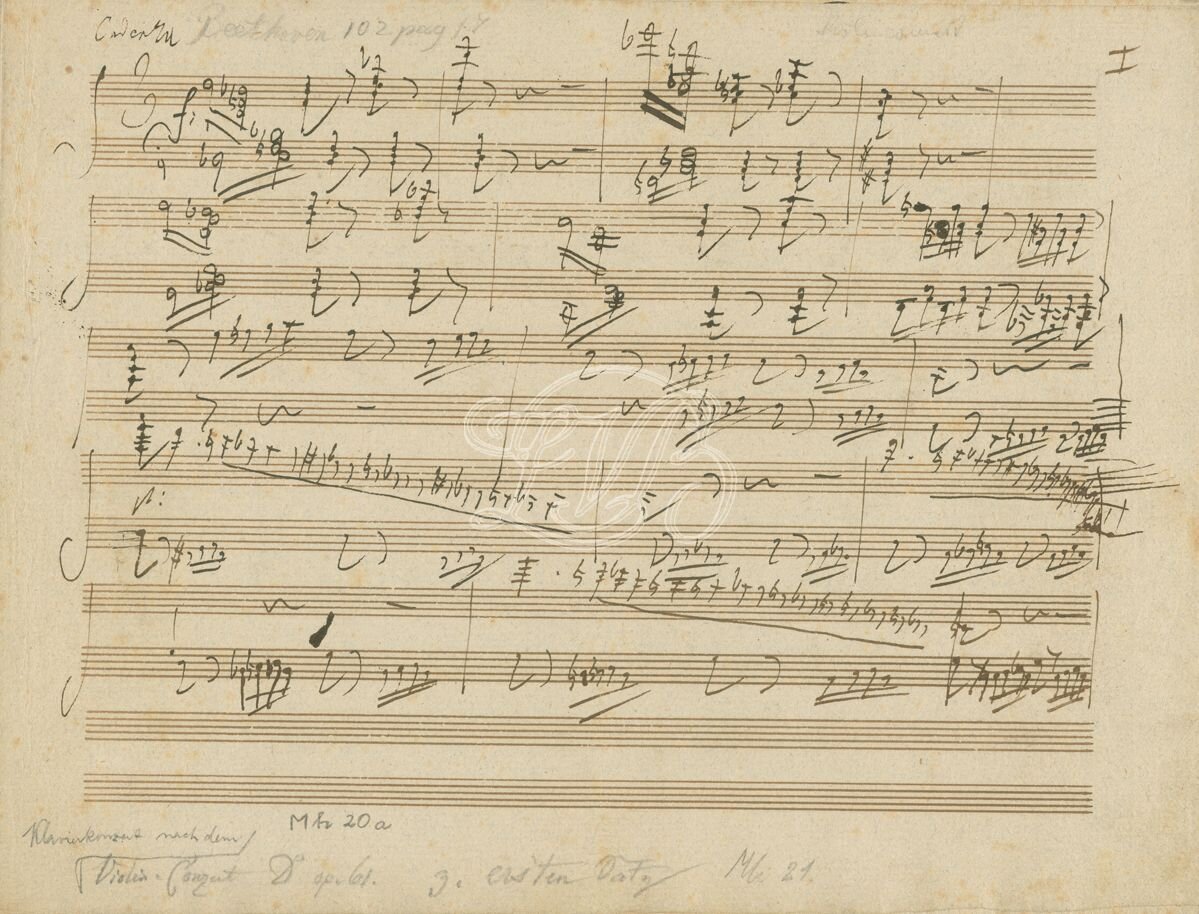 Cadenza Beethoven 102 pag 1-7 Violinconcert I
f:
p:
LVB
Klavierkonzert nach dem MH 20a
Violin-Conzert D op. 61. z. ersten Satz Mh. 21.